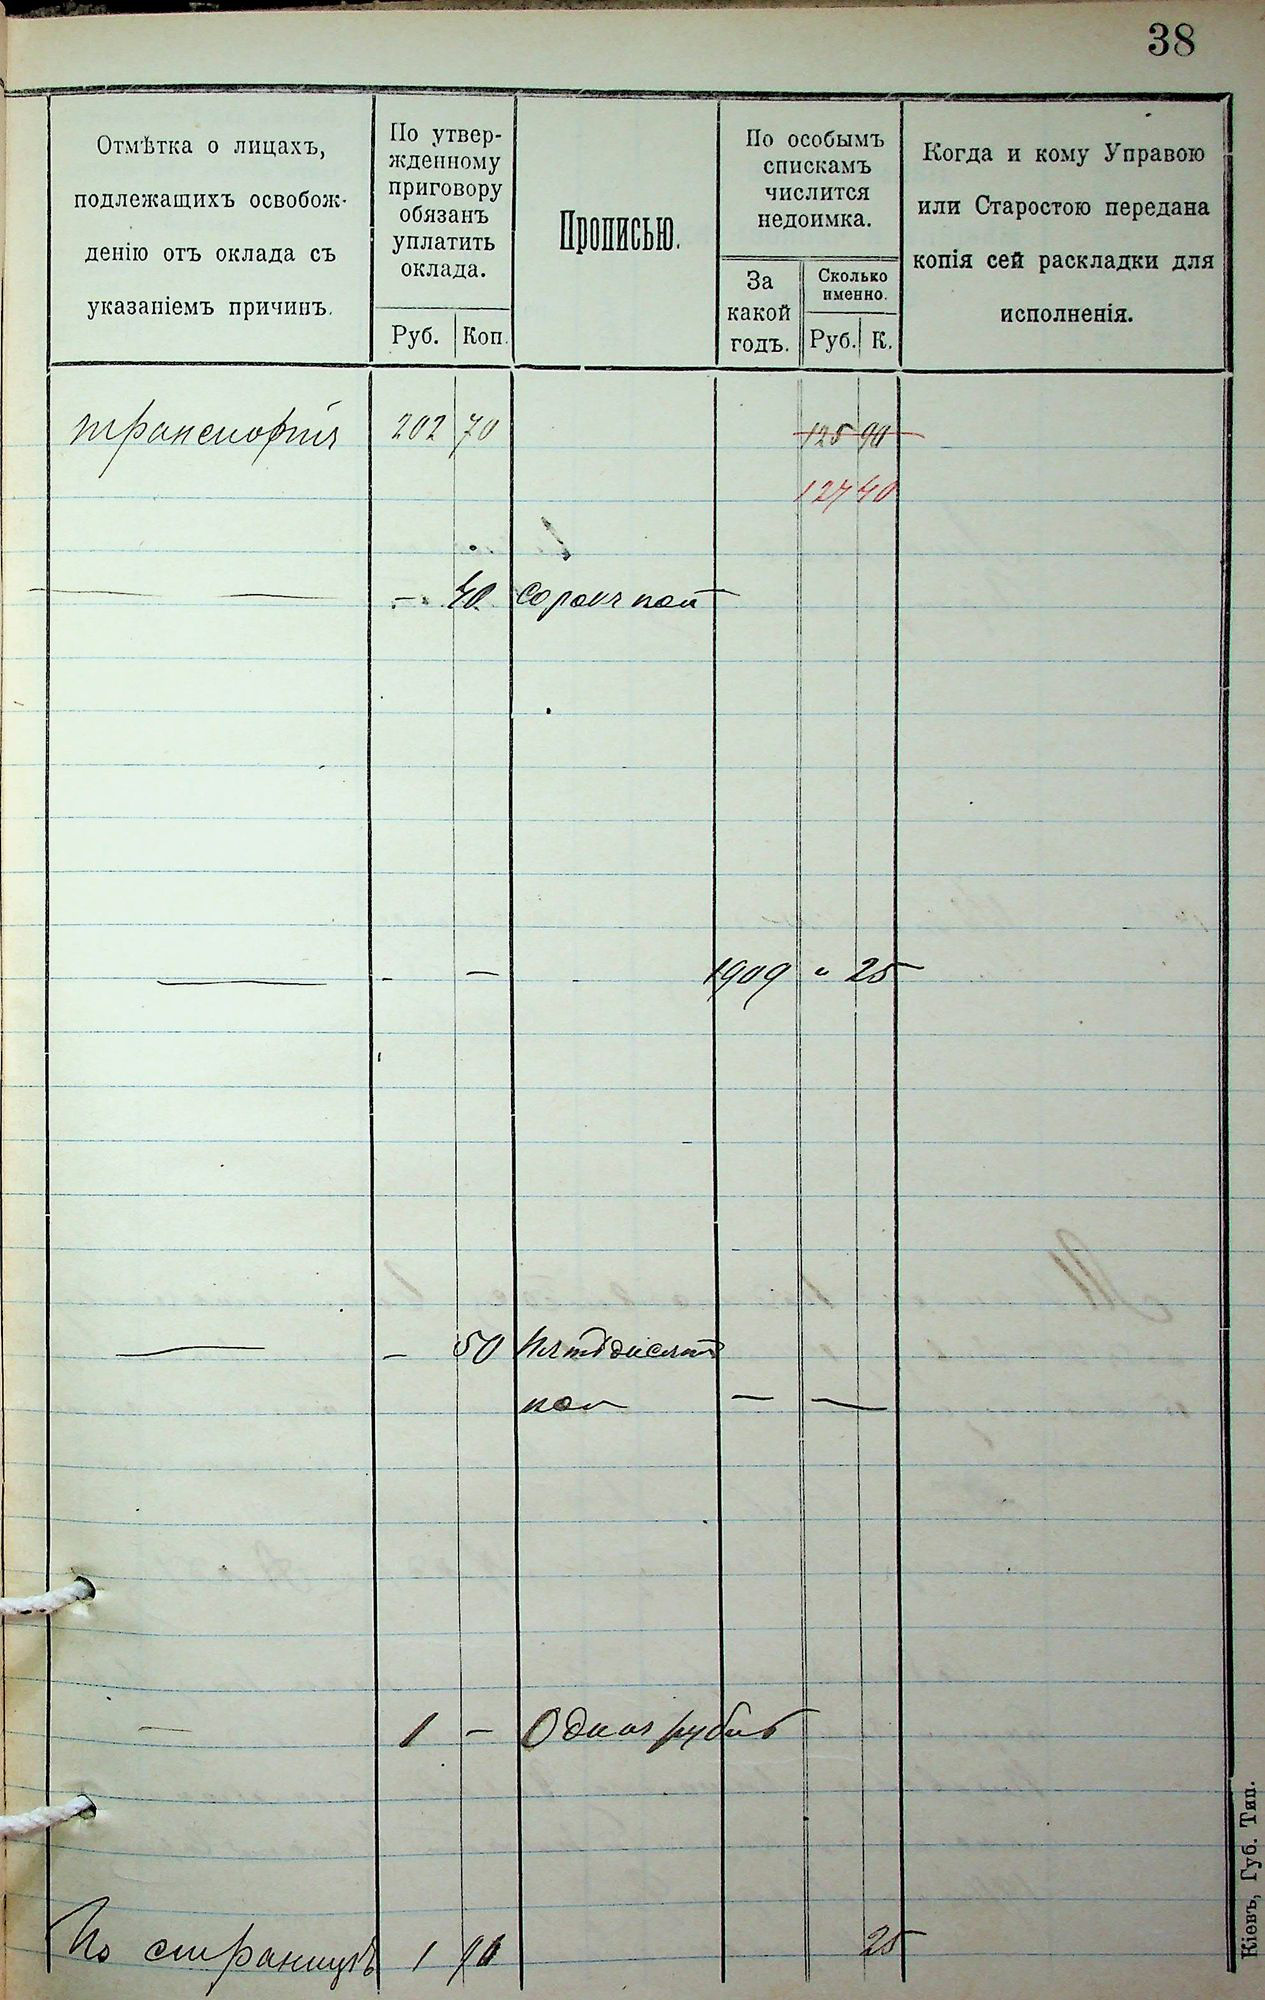 38
Отмѣтка о лицахъ,
подлежащихъ освобож-
денію отъ оклада съ
указаніемъ причинъ.
По утвер-
жденному
приговору
обязанъ
уплатить
оклада.
Руб. Коп.
Прописью.
По особымъ
спискамъ
числится
недоимка.
За
какой
годъ.
Сколько
именно.
Руб. К.
Когда и кому Управою
или Старостою передана
копія сей раскладки для
исполненія.
транспортъ 202 70 125 90
127 40
— — — 40 Сорокъ коп
— - — 1909 " 25
— — 50 Пятьдесятъ
коп — —
— 1 — Одинъ рубль
По страницѣ 1 90 25
Кіевъ, Губ. Тип.